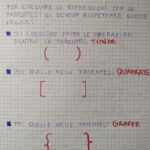 PER ESEGUIRE LE ESPRESSIONI CON LE
PARENTESI SI DEVONO RISPETTARE QUESTE
REGOLE:
SI ESEGUONO PRIMA LE OPERAZIONI
DENTRO LE PARENTESI TONDE
( )
POI QUELLE NELLE PARENTESI QUADRATE
[ ]
POI QUELLE NELLE PARENTESI GRAFFE
{ }